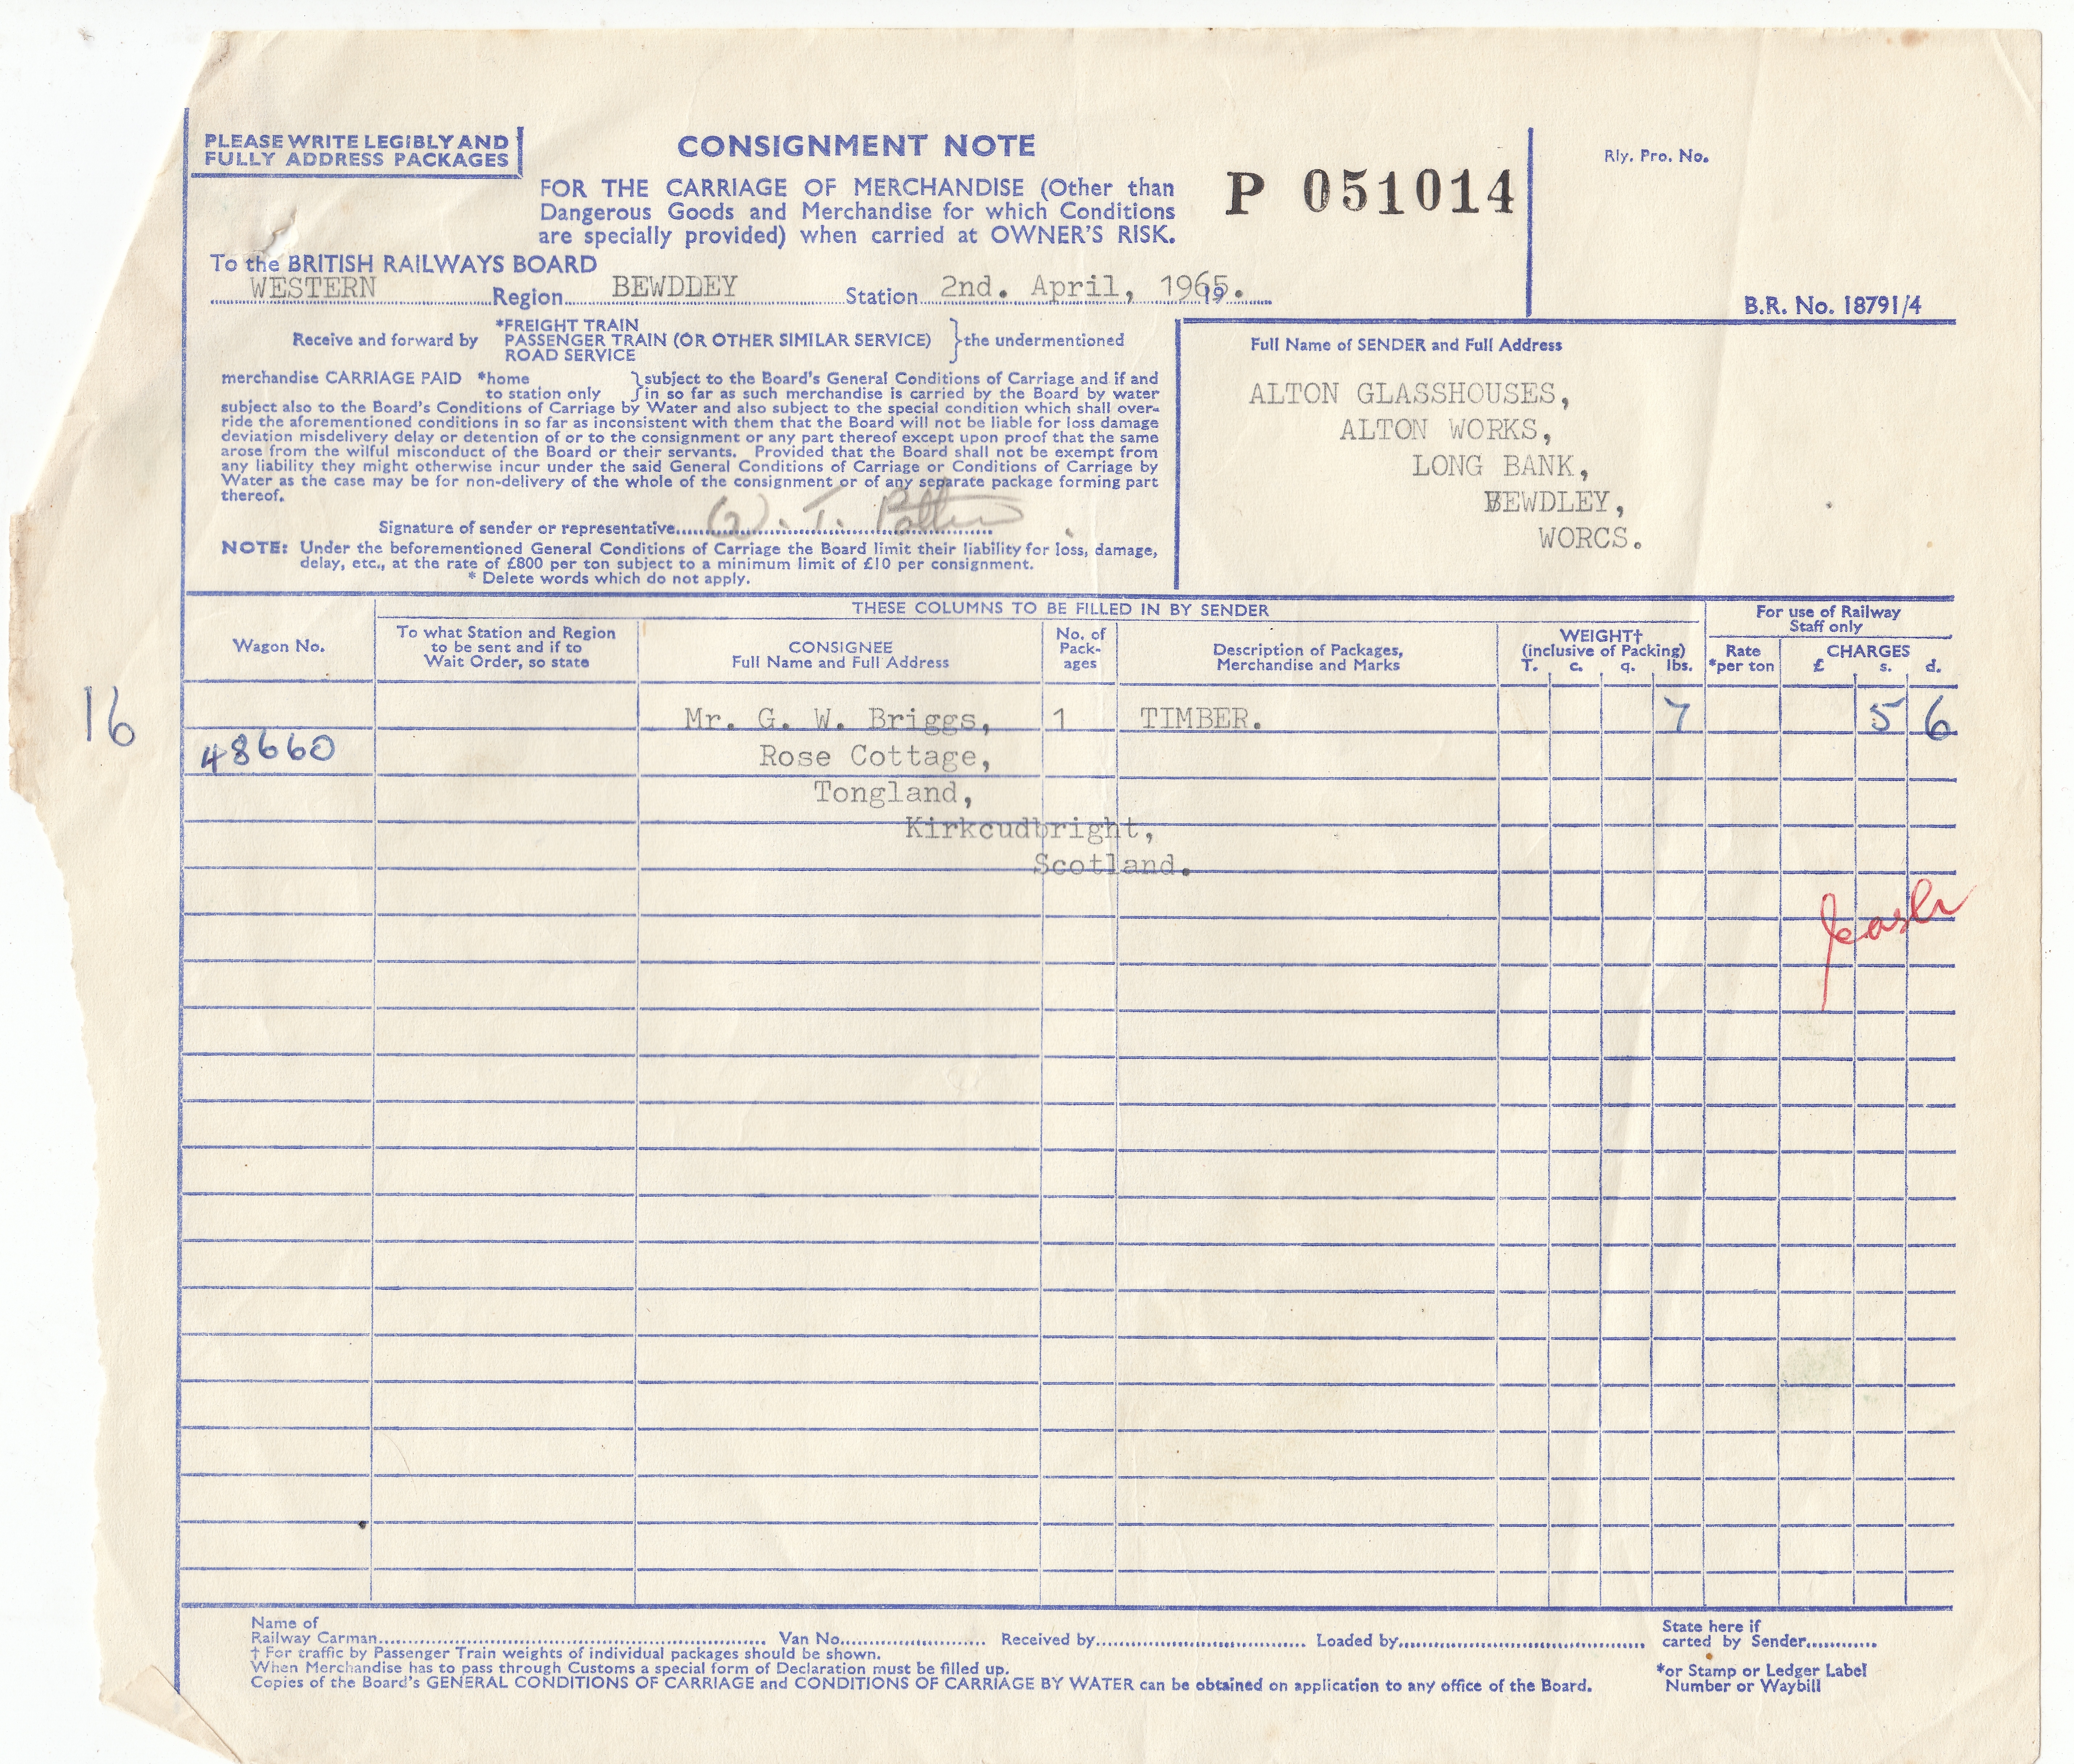 PLEASE WRITE LEGIBLY AND
FULLY ADDRESS PACKAGES
CONSIGNMENT NOTE
FOR THE CARRIAGE OF MERCHANDISE (Other than
Dangerous Goods and Merchandise for which Conditions
are specially provided) when carried at OWNER'S RISK.
P 051014
Rly. Pro. No.
B.R. No. 18791/4
To the BRITISH RAILWAYS BOARD
WESTERN Region BEWDLEY Station 2nd. April, 1965. 19
Receive and forward by
*FREIGHT TRAIN
PASSENGER TRAIN (OR OTHER SIMILAR SERVICE)
ROAD SERVICE
the undermentioned
merchandise CARRIAGE PAID *home
to station only
subject to the Board's General Conditions of Carriage and if and
in so far as such merchandise is carried by the Board by water
subject also to the Board's Conditions of Carriage by Water and also subject to the special condition which shall over-
ride the aforementioned conditions in so far as inconsistent with them that the Board will not be liable for loss damage
deviation misdelivery delay or detention of or to the consignment or any part thereof except upon proof that the same
arose from the wilful misconduct of the Board or their servants. Provided that the Board shall not be exempt from
any liability they might otherwise incur under the said General Conditions of Carriage or Conditions of Carriage by
Water as the case may be for non-delivery of the whole of the consignment or of any separate package forming part
thereof.
Signature of sender or representative W. T.
NOTE: Under the beforementioned General Conditions of Carriage the Board limit their liability for loss, damage,
delay, etc., at the rate of £800 per ton subject to a minimum limit of £10 per consignment.
* Delete words which do not apply.
Full Name of SENDER and Full Address
ALTON GLASSHOUSES,
ALTON WORKS,
LONG BANK,
BEWDLEY,
WORCS.
THESE COLUMNS TO BE FILLED IN BY SENDER
For use of Railway
Staff only
Wagon No.
To what Station and Region
to be sent and if to
Wait Order, so state
CONSIGNEE
Full Name and Full Address
No. of
Pack-
ages
Description of Packages,
Merchandise and Marks
WEIGHT†
(inclusive of Packing)
T. c. q. lbs.
Rate
*per ton
CHARGES
£ s. d.
16
Mr. G. W. Briggs, 1 TIMBER. 7 5 6
48660 Rose Cottage,
Tongland,
Kirkcudbright,
Scotland.
cash
Name of
Railway Carman Van No. Received by Loaded by
State here if
carted by Sender
† For traffic by Passenger Train weights of individual packages should be shown.
When Merchandise has to pass through Customs a special form of Declaration must be filled up.
Copies of the Board's GENERAL CONDITIONS OF CARRIAGE and CONDITIONS OF CARRIAGE BY WATER can be obtained on application to any office of the Board.
*or Stamp or Ledger Label
Number or Waybill